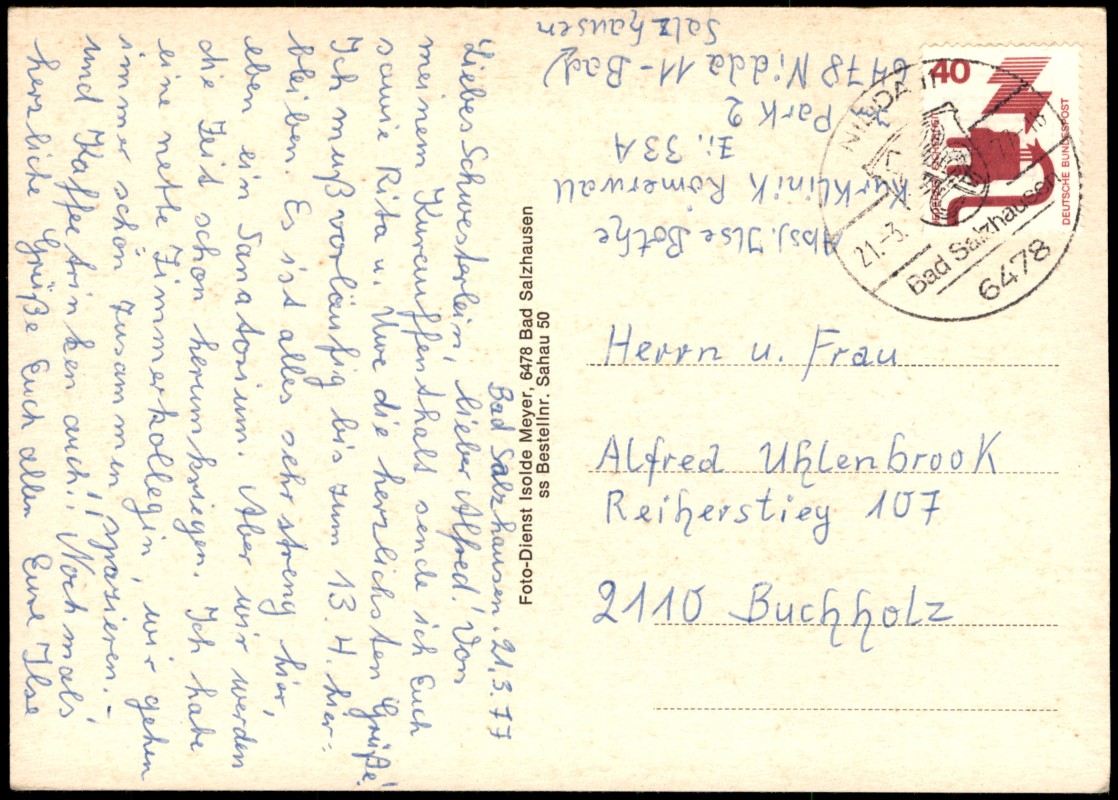 Bad Salzhausen, 21.3.77
Liebes Schwesterlein, lieber Alfred! Von
meinem Kuraufenthalt sende ich Euch
sowie Rita u. Uwe die herzlichsten Grüße!
Ich muß vorläufig bis zum 13.4. hier-
bleiben. Es ist alles sehr streng hier,
eben ein Sanatorium. Aber wir werden
die Zeit schon herumkriegen. Ich habe
eine nette Zimmerkollegin, wir gehen
immer schön zusammen spazieren.-
und Kaffeetrinken auch!! Nochmals
herzliche Grüße Euch allen Eure Ilse
Foto-Dienst Isolde Meyer, 6478 Bad Salzhausen
ss Bestellnr. Sahau 50
Abs. Ilse Bothe
Kurklinik Römerwall
Zi. 33A
Park 2
6478 Nidda 11-Bad
Salzhausen
40
DEUTSCHE BUNDESPOST
NIDDA 11
21.-3.
Bad Salzhausen
6478
Herrn u. Frau
Alfred Uhlenbrook
Reiherstieg 107
2110 Buchholz